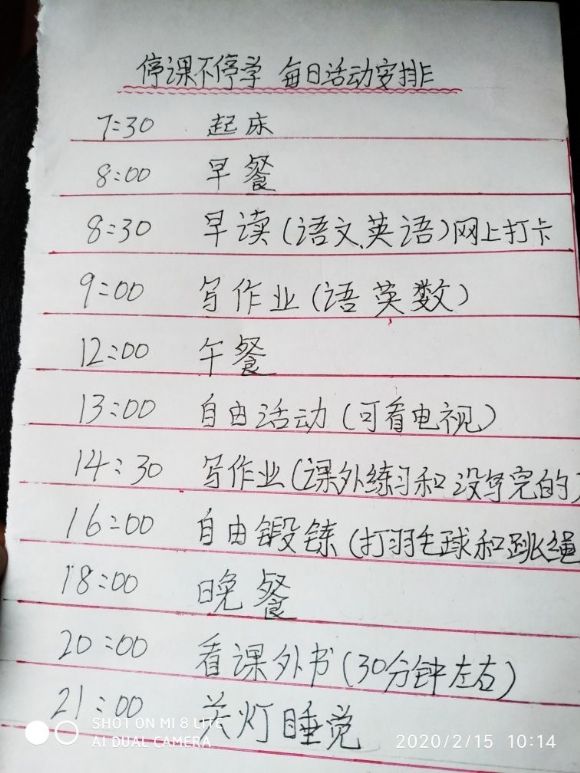 停课不停学 每日活动安排
7:30 起床
8:00 早餐
8:30 早读(语文、英语)网上打卡
9:00 写作业(语英数)
12:00 午餐
13:00 自由活动(可看电视)
14:30 写作业(课外练习和没写完的
16:00 自由锻铼(打羽毛球和跳绳
18:00 晚餐
20:00 看课外书(30分钟左右)
21:00 关灯睡觉
SHOT ON MI 8 LITE
AI DUAL CAMERA
2020/2/15 10:14